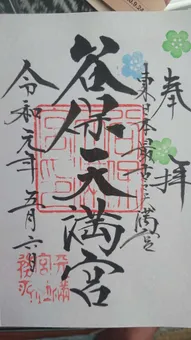 奉拝
東日本最古天満宮
谷保天満宮
令和元年五月六日